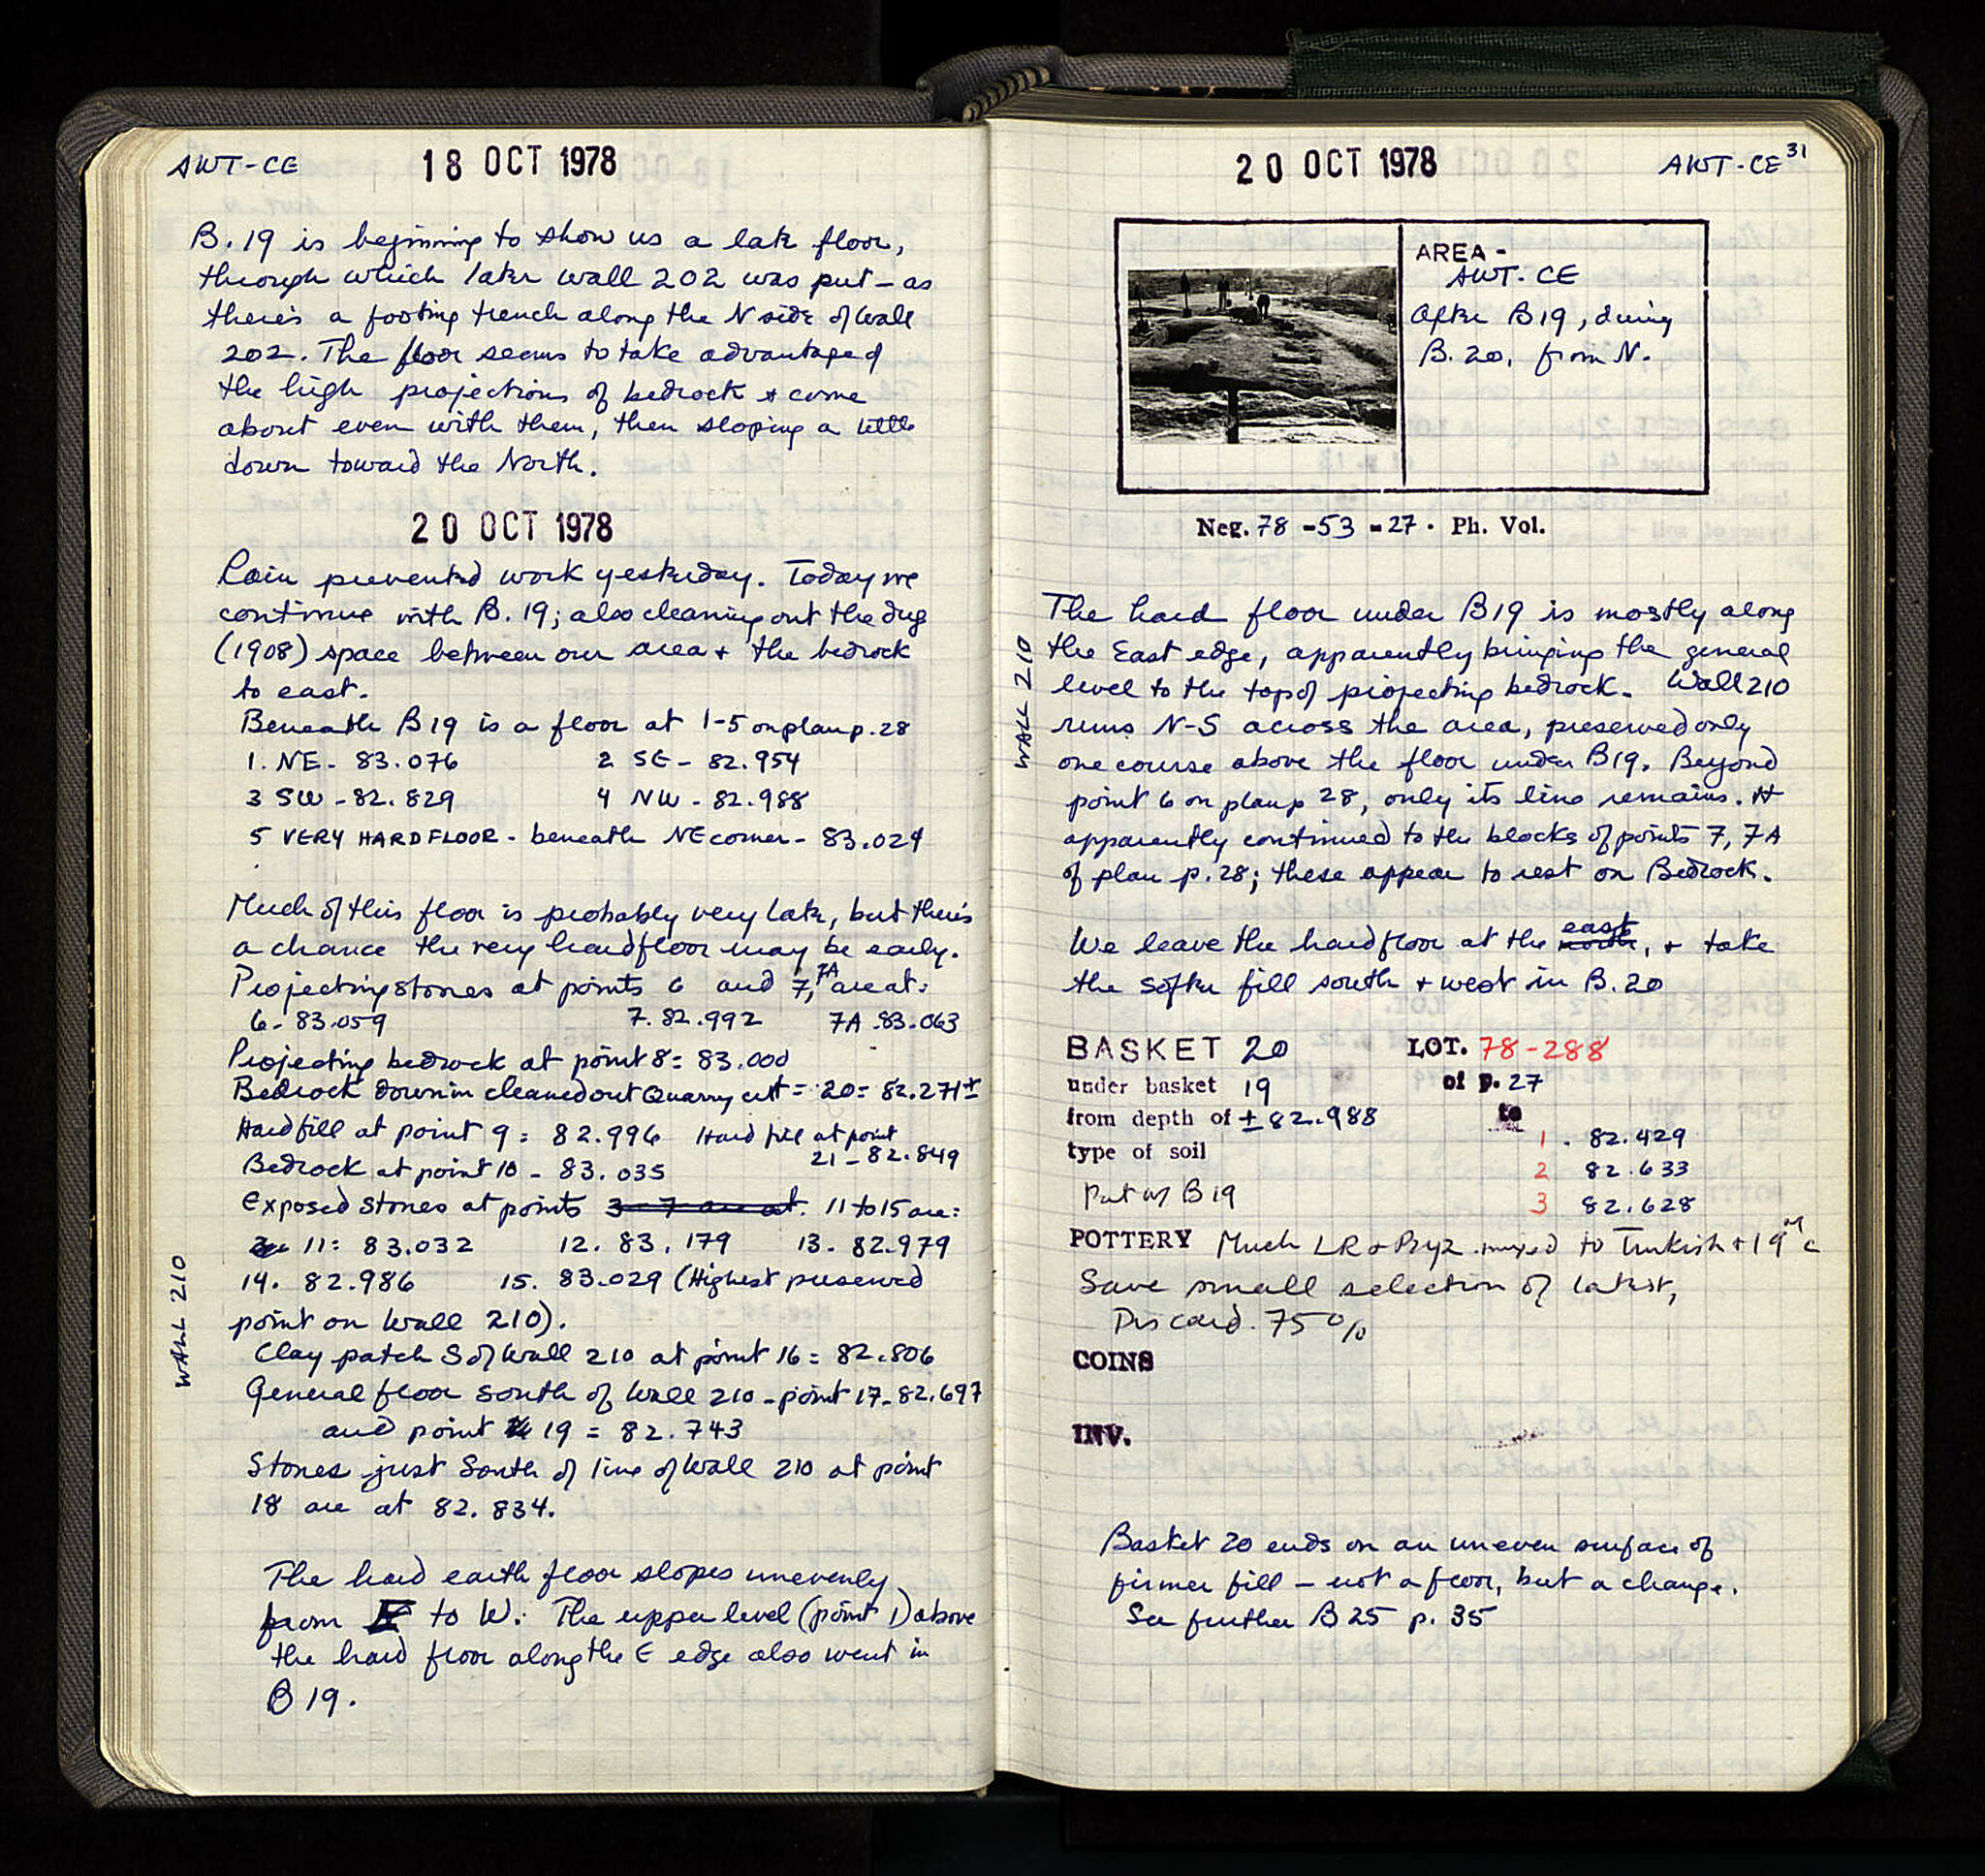 AWT-CE
18 OCT 1978
B. 19 is beginning to show us a late floor,
through which later wall 202 was put - as
there's a footing trench along the N side of Wall
202. The floor seems to take advantage of
the high projections of bedrock & come
about even with them, then sloping a little
down toward the North.
20 OCT 1978
Rain prevented work yesterday. Today we
continue with B. 19; also cleaning out the dug
(1908) space between our area & the bedrock
to east.
Beneath B19 is a floor at 1-5 on plan p. 28
1. NE - 83.076 2 SE - 82.954
3 SW - 82.829 4 NW - 82.988
5 VERY HARD FLOOR - beneath NE corner - 83.024
Much of this floor is probably very late, but there's
a chance the very hard floor may be early.
Projecting stones at points 6 and 7, 7A are at:
6 - 83.059 7. 82.992 7A - 83.063
Projecting bedrock at point 8 = 83.000
Bedrock down in cleaned out Quarry cut = 20 = 82.271±
Hard fill at point 9 = 82.996 Hard fill at point
21 - 82.849
Bedrock at point 10 - 83.035
Exposed stones at points 3-7 are at. 11 to 15 are:
11: 83.032 12. 83.179 13. 82.979
14. 82.986 15. 83.029 (Highest preserved
point on Wall 210).
WALL 210
Clay patch S of Wall 210 at point 16 = 82.806
General floor south of Wall 210 - point 17 - 82.697
and point 19 = 82.743
Stones just South of line of Wall 210 at point
18 are at 82.834.
The hard earth floor slopes unevenly
from E to W. The upper level (point 1) above
the hard floor along the E edge also went in
B 19.
20 OCT 1978
AWT-CE 31
AREA -
AWT-CE
After B19, during
B. 20, from N.
Neg. 78 - 53 - 27 · Ph. Vol.
WALL 210
The hard floor under B19 is mostly along
the East edge, apparently bringing the general
level to the top of projecting bedrock. Wall 210
runs N-S across the area, preserved only
one course above the floor under B19. Beyond
point 6 on plan p 28, only its line remains. It
apparently continued to the blocks of points 7, 7A
of plan p. 28; these appear to rest on Bedrock.
We leave the hard floor at the north east, & take
the softer fill south & west in B. 20
BASKET 20 LOT. 78-288
under basket 19 of p. 27
from depth of ± 82.988 to
1. 82.429
type of soil
2 82.633
Put w/ B19
3 82.628
POTTERY Much LR & Byz mixed to Turkish & 19th c
Save small selection of latest,
Discard 75%
COINS
INV.
Basket 20 ends on an uneven surface of
firmer fill - not a floor, but a change.
See further B 25 p. 35